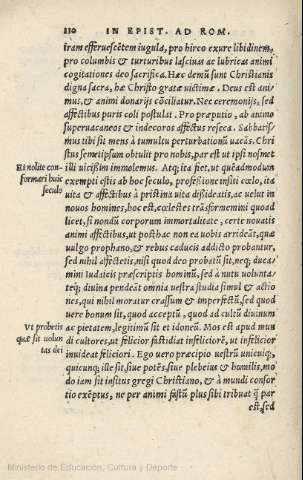 110 IN EPIST. AD ROM.
iram efferuescētem iugula, pro hirco exure libidinem,
pro columbis & turturibus lasciuas ac lubricas animi
cogitationes deo sacrifica. Hæc demū sunt Christianis
digna sacra, hæ Christo gratæ victimæ. Deus est ani-
mus, & animi donarijs cōciliatur. Nec ceremonijs, sed
affectibus puris coli postulat. Pro præputio, ab animo
superuacaneos & indecoros affectus reseca. Sabbatis-
mus tibi sit mens à tumultu perturbationū uacās. Chri-
stus semetipsum obtulit pro nobis, par est ut ipsi nosmet
illi uicissim immolemus. Atq; ita fiet, ut quēadmodum
Et nolite con-
formari huic
seculo
exempti estis ab hoc seculo, professione insiti cœlo, ita
uita & affectibus à pristina uita dissideatis, ac uelut in
nouos homines, hoc est, cœlestes trāsformemini quoad
licet, si nondū corporum immortalitate, certe nouatis
animi affectibus, ut posthac non ea uobis arrideāt, quæ
uulgo prophano, & rebus caducis addicto probantur,
sed nihil affectetis, nisi quod deo probatū sit, neq; ducæ-
mini Iudaicis præscriptis hominū, sed à nutu uolunta-
teq; diuina pendeat omnia uestra studia simul & actio
nes, qui nihil moratur crassum & imperfectū, sed quod
uere bonum sit, quod acceptū, quod ad cultū diuinum
Vt probetis
quæ sit uolun
tas dei
ac pietatem, legitimū sit et idoneū. Mos est apud mun-
di cultores, ut felicior fastidiat infeliciorē, ut infelicior
inuideat feliciori. Ego uero præcipio uestrū unicuiq;,
quicunq; ille sit, siue potēs, siue plebeius & humilis, mo
do iam sit insitus gregi Christiano, & à mundi consor
tio exēptus, ne per animi fastū plus sibi tribuat q̄ par
est, sed
Ministerio de Educación, Cultura y Deporte